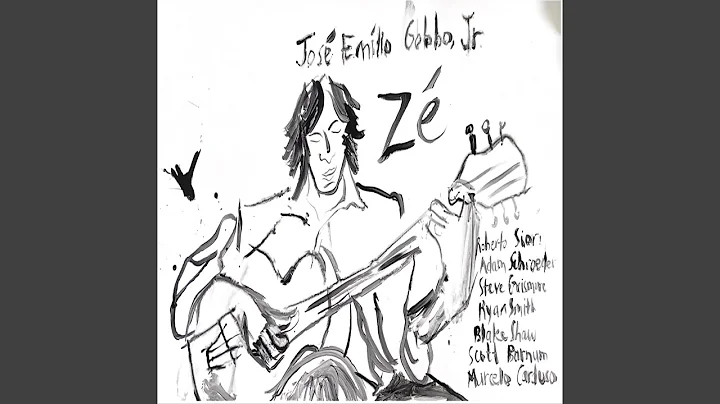 José Emílio Gobbo, Jr.
Zé
Roberto Sior
Adam Schroeder
Steve Grismore
Ryan Smith
Blake Shaw
Scott Barnum
Marcelo Cardoso